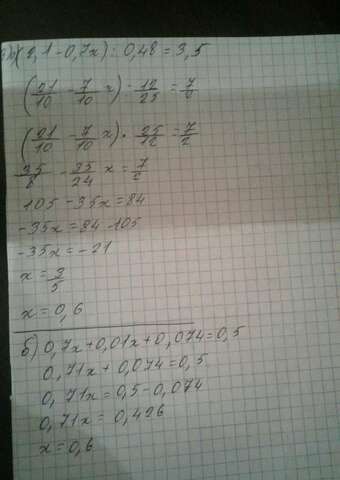 а) (2,1-0,7x) : 0,48 = 3,5
(21/10 - 7/10 x) : 12/25 = 7/2
(21/10 - 7/10 x) · 25/12 = 7/2
35/8 - 35/24 x = 7/2
105 - 35x = 84
-35x = 84-105
-35x = -21
x = 3/5
x = 0,6
б) 0,7x+0,01x+0,074=0,5
0,71x + 0,074=0,5
0,71x=0,5-0,074
0,71x = 0,426
x=0,6